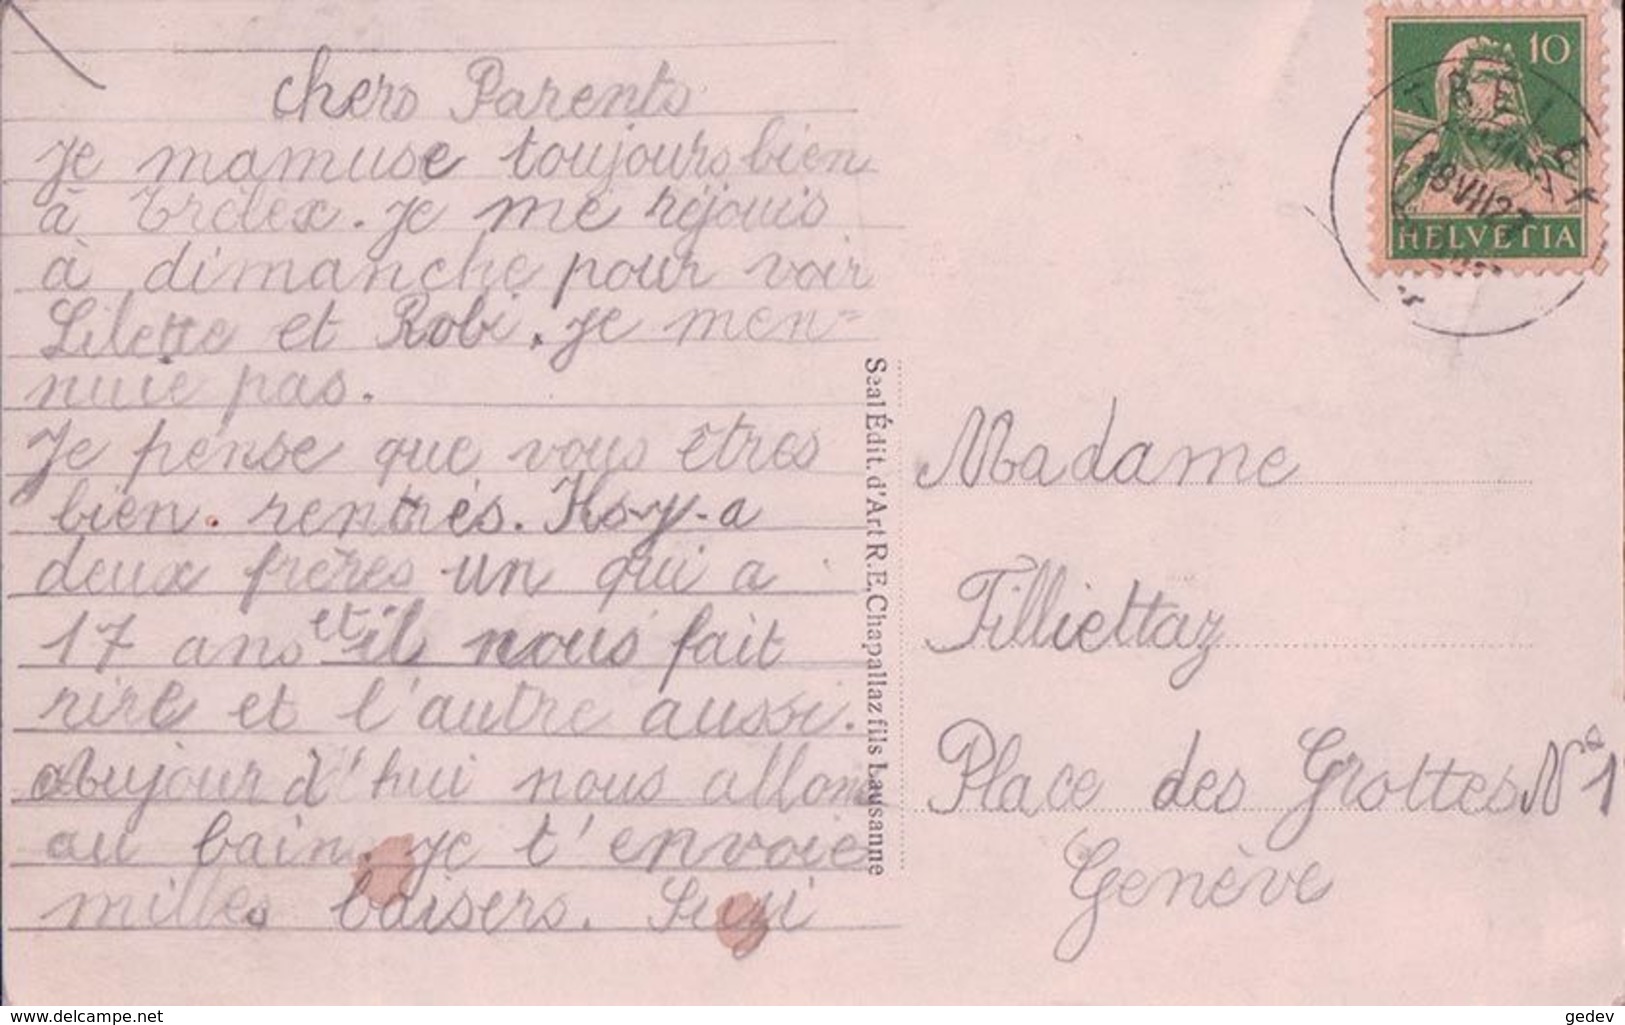 chers Parents
Je mamuse toujours bien
à Trélex. Je me réjouis
à dimanche pour voir
Lilette et Robi. Je men=
nuie pas.
Je pense que vous êtres
bien. rentrés. Ils-y-a
deux frères un qui a
17 ans et il nous fait
rire et l'autre aussi.
Aujour d'hui nous allons
au bain. Je t'envoie
milles baisers. Suzi
Seal Édit. d'Art R.E. Chapallaz fils Lausanne
10
HELVETIA
TRÉLEX
18 VII 27
Madame
Filliettaz
Place des Grottes N° 1
Genève
www.delcampe.net
gedev